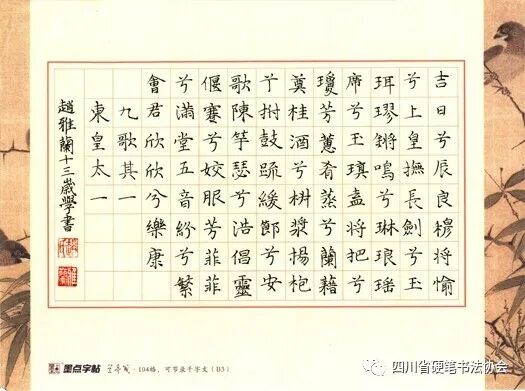 吉日兮辰良穆將愉
兮上皇撫長劍兮玉
珥璆鏘鳴兮琳琅瑤
席兮玉瑱盍將把兮
瓊芳蕙肴蒸兮蘭藉
奠桂酒兮椒漿揚枹
兮拊鼓疏緩節兮安
歌陳竽瑟兮浩倡靈
偃蹇兮姣服芳菲菲
兮滿堂五音紛兮繁
會君欣欣兮樂康
九歌其一
東皇太一
趙雅蘭十三歲學書
墨点字帖 · 104格，可节录千字文（B3）
四川省硬笔书法协会